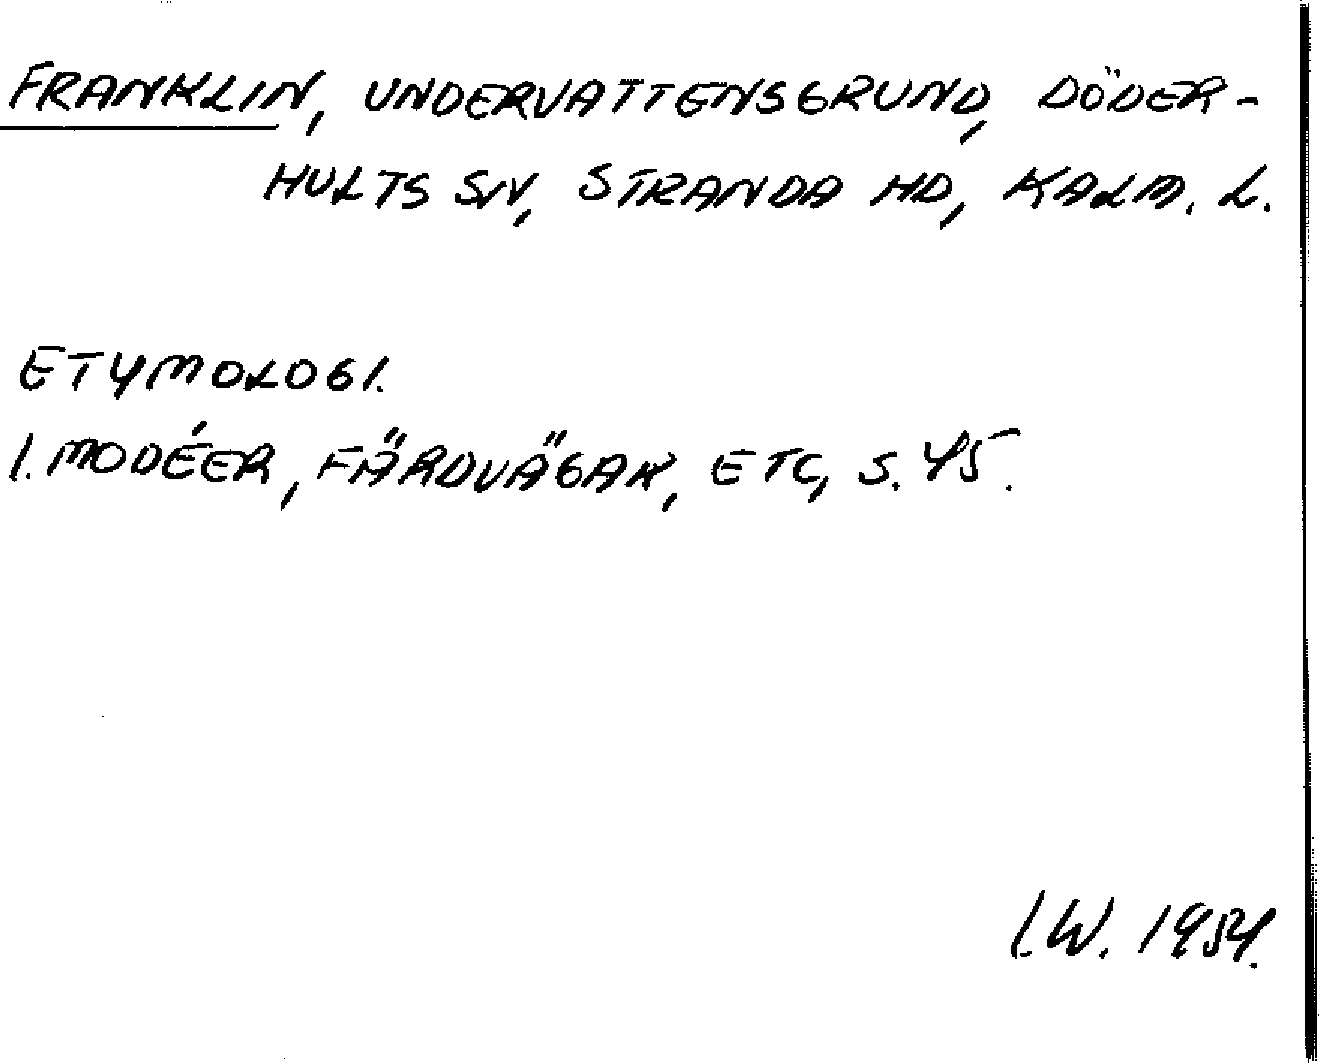 FRANKLIN, UNDERVATTENSGRUND, DÖDER-
HULTS SN, STRANDA HD, KALM. L.
ETYMOLOGI.
I. MODÉER, FÄRDVÄGAR, ETC, S. 45.
I.W. 1954.